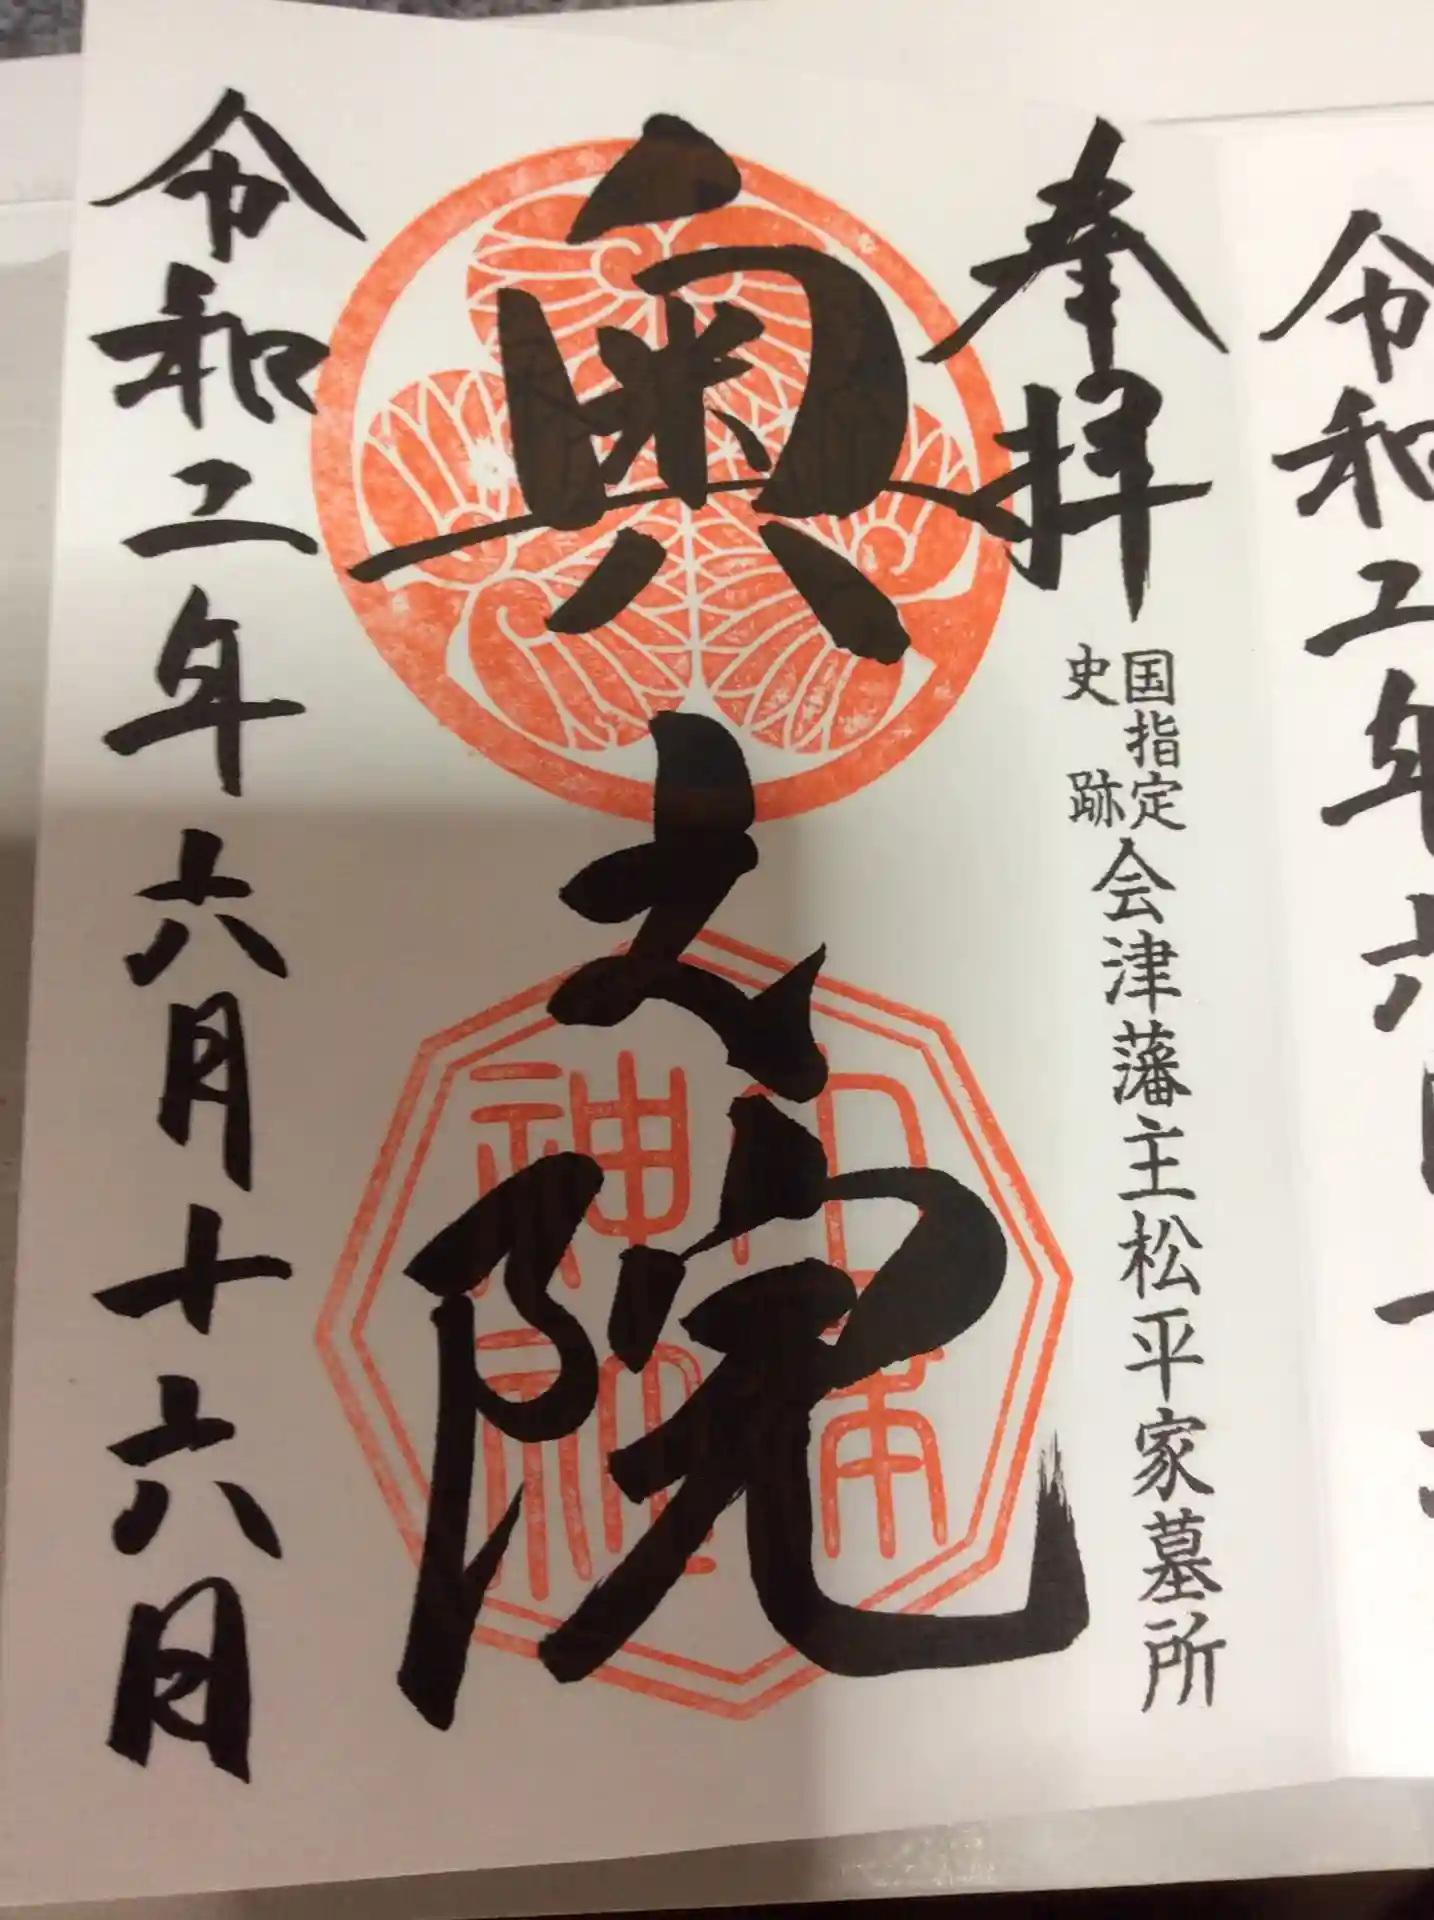 令和二年六
奉拝
国指定
史跡
会津藩主松平家墓所
奥之院
令和二年六月十六日